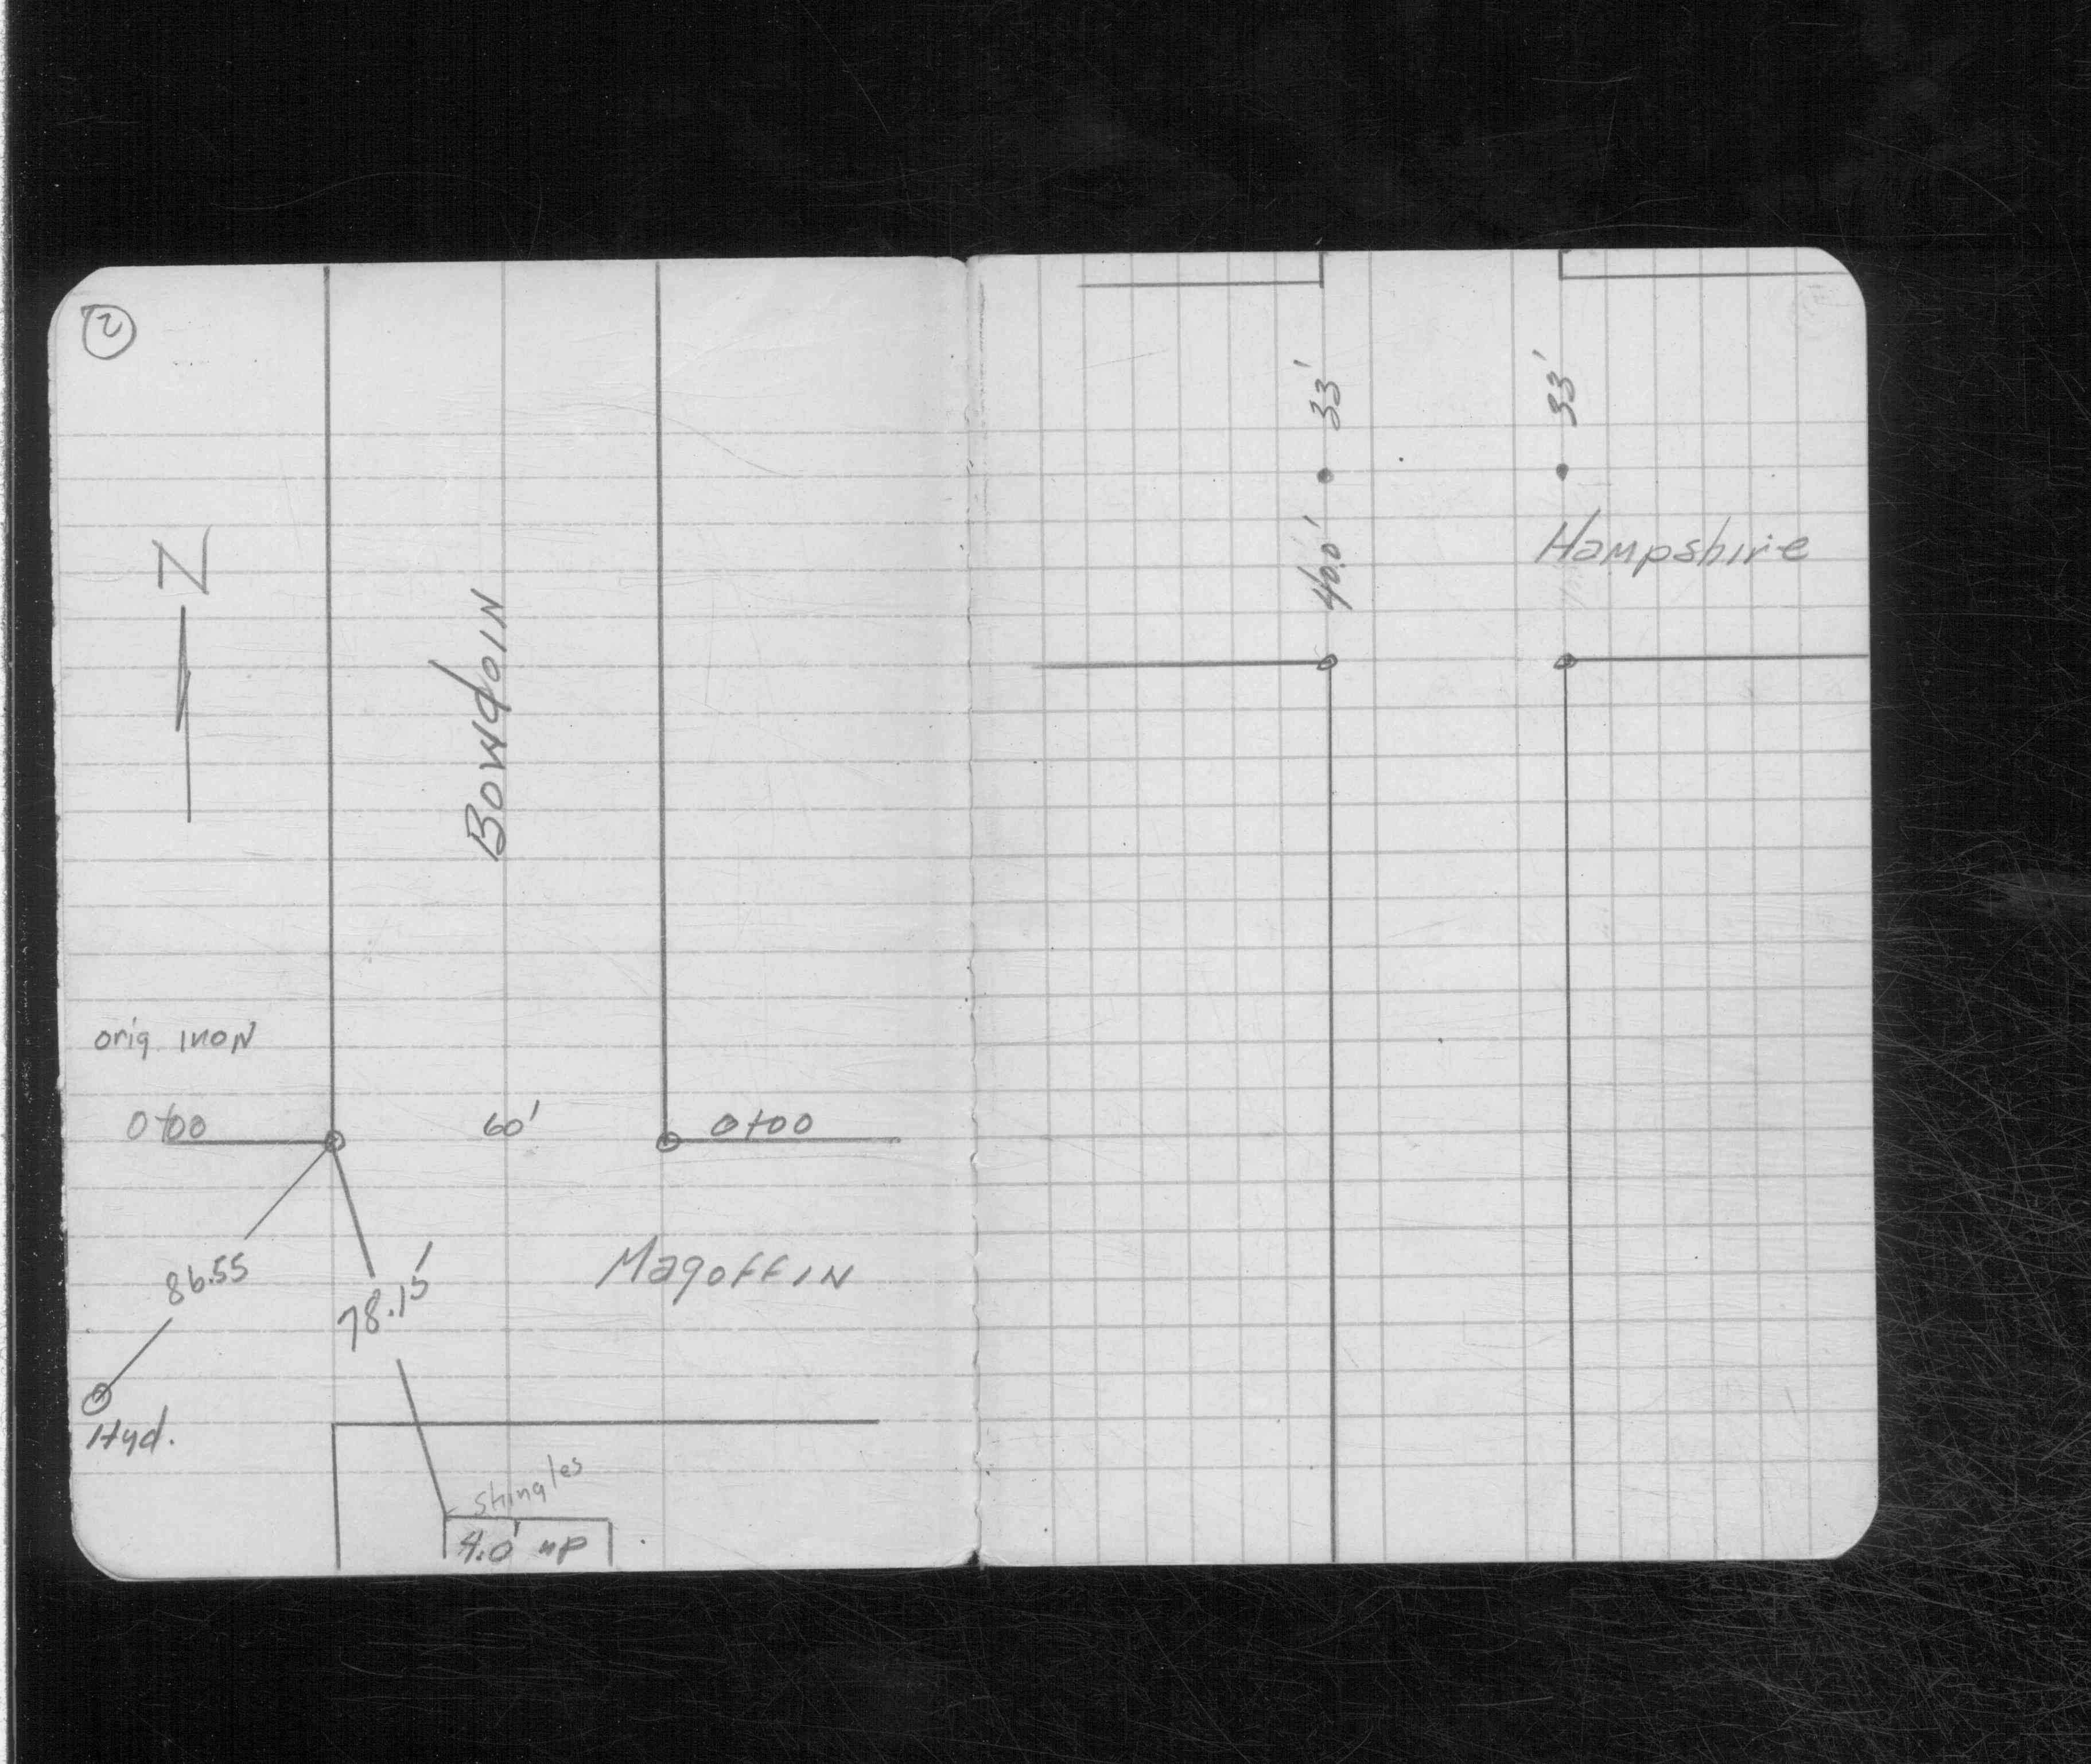 2
N
Bowdoin
orig. iron
0+00
60'
0+00
86.55
78.15'
Magoffin
Hyd.
shingles
4.0' up
33'
33'
40.0'
Hampshire